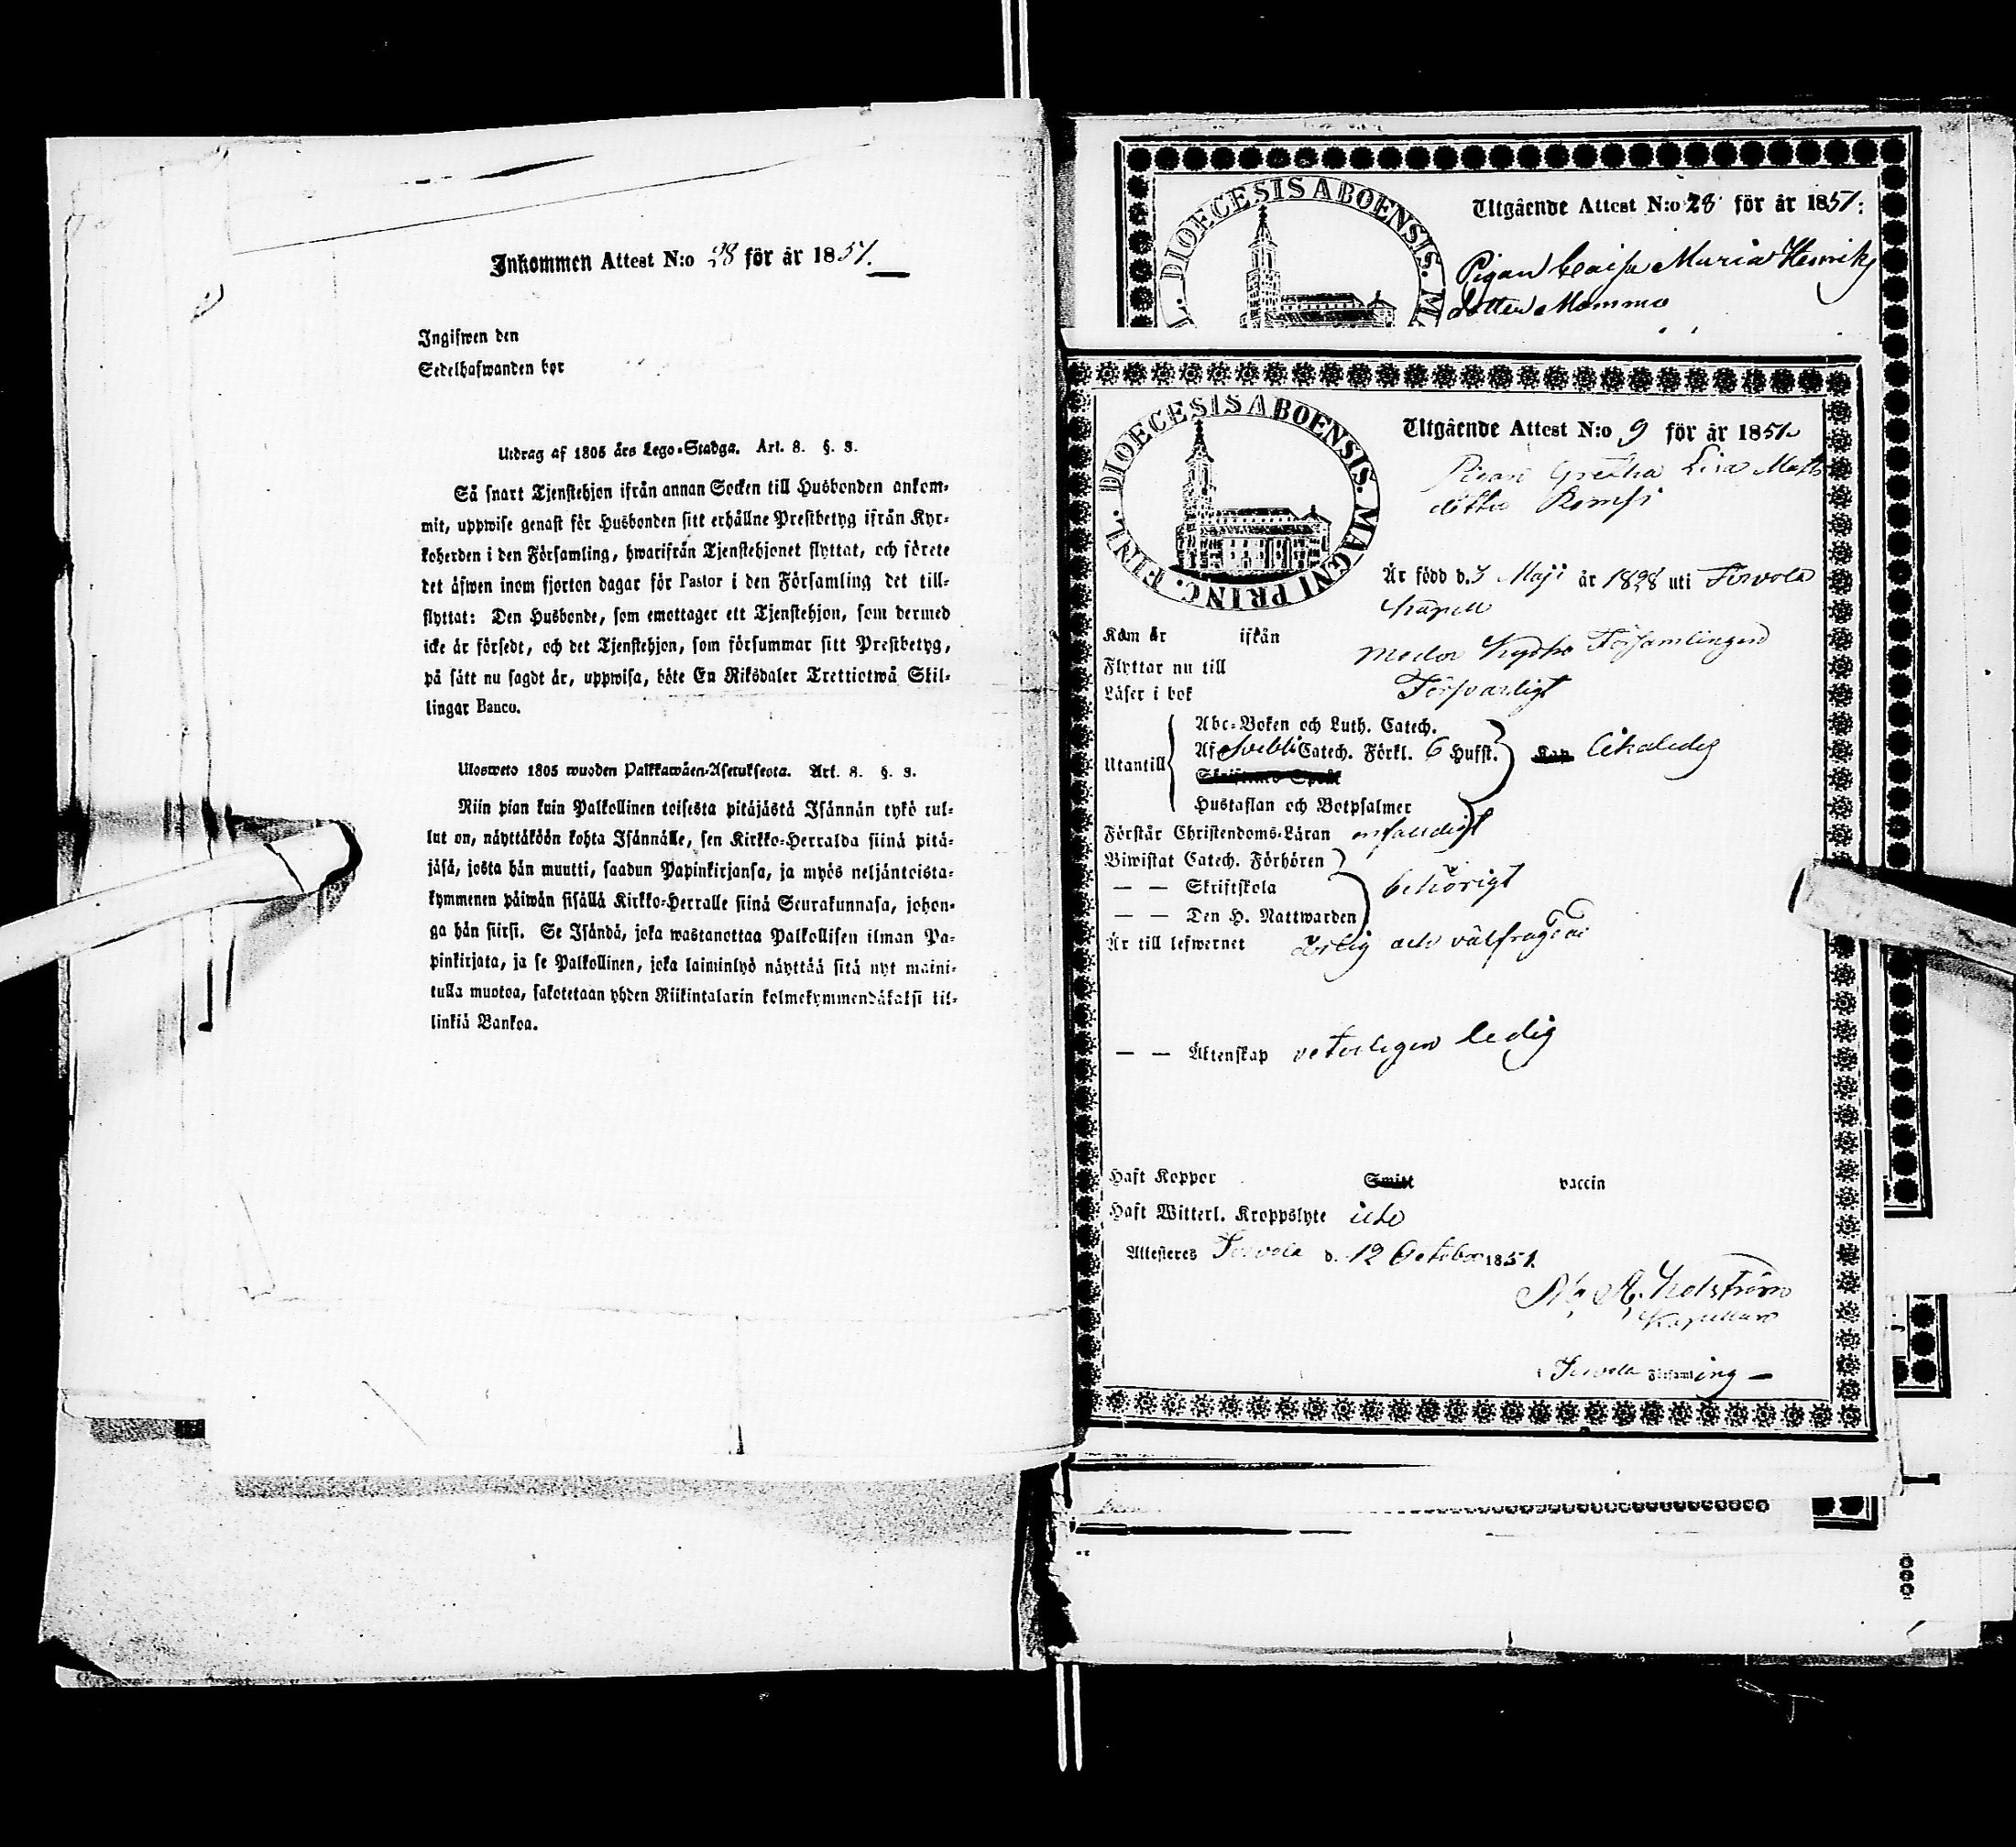 Inkommen Attest N:o 28 för år 1851.
Ingifwen den
Sedelhafwanden bor
Utdrag af 1805 års Lego-Stadga. Art. 8. §. 9.
Så snart Tjenstehjon ifrån annan Socken till Husbonden ankom-
mit, uppwise genast för Husbonden sitt erhållne Prestbetyg ifrån Kyr-
koherden i den Församling, hwarifrån Tjenstehjonet flyttat, och förete
det äfwen inom fjorton dagar för Pastor i den Församling det till-
flyttat: Den Husbonde, som emottager ett Tjenstehjon, som dermed
icke är försedt, och det Tjenstehjon, som försummar sitt Prestbetyg,
på sätt nu sagdt är, uppwisa, böte En Riksdaler Trettiotwå Skil-
lingar Banco.
Ulosweto 1805 wuoden Palkkawäen-Asetuksesta. Art. 8. §. 9.
Niin pian kuin Palkollinen toisesta pitäjästä Isännän tykö tul-
lut on, näyttäköön kohta Isännälle, sen Kirkko-Herralda siinä pitä-
jäsä, josta hän muutti, saadun Papinkirjansa, ja myös neljäntoista-
kymmenen päiwän sisällä Kirkko-Herralle siinä Seurakunnasa, johon-
ga hän siirsi. Se Isändä, joka wastanottaa Palkollisen ilman Pa-
pinkirjata, ja se Palkollinen, joka laiminlyö näyttää sitä nyt maini-
tulla muotoa, sakotetaan yhden Riikintalarin kolmekymmendäkaksi kil-
linkiä Bankoa.
DIOECESIS ABOENSIS. M
Utgående Attest N:o 28 för år 1851:
Pigan Caisa Maria Henriks
dotter Mommo
DIOECESIS ABOENSIS. MAGNI PRINC. FINL.
Utgående Attest N:o 9 för år 1851
Pigan Gretha Lisa Matts
dotter
Är född d. 3 Maji år 1828 uti Tervola
Kapell
Kom år ifrån
Flyttar nu till moder Kyrko Församlingen
Läser i bok Försvarligt
Abc-Boken och Luth. Catech.
Utantill Af Svebili Catech. Förkl. 6 Hufst. likaledes
Hustaflan och Botpsalmer
Förstår Christendoms-Läran enfaldigt
Biwistat Catech. Förhören
— — Skriftskola behörigt
— — Den H. Nattwarden
Är till lefwernet ärlig och välfrägdad
— — Äktenskap veterligen ledig
Haft Koppor Smitt vaccin
Haft Witterl. Kroppslyte icke
Attesteres Tervola d. 12 October 1851.
Kapellan
i Tervola Församling